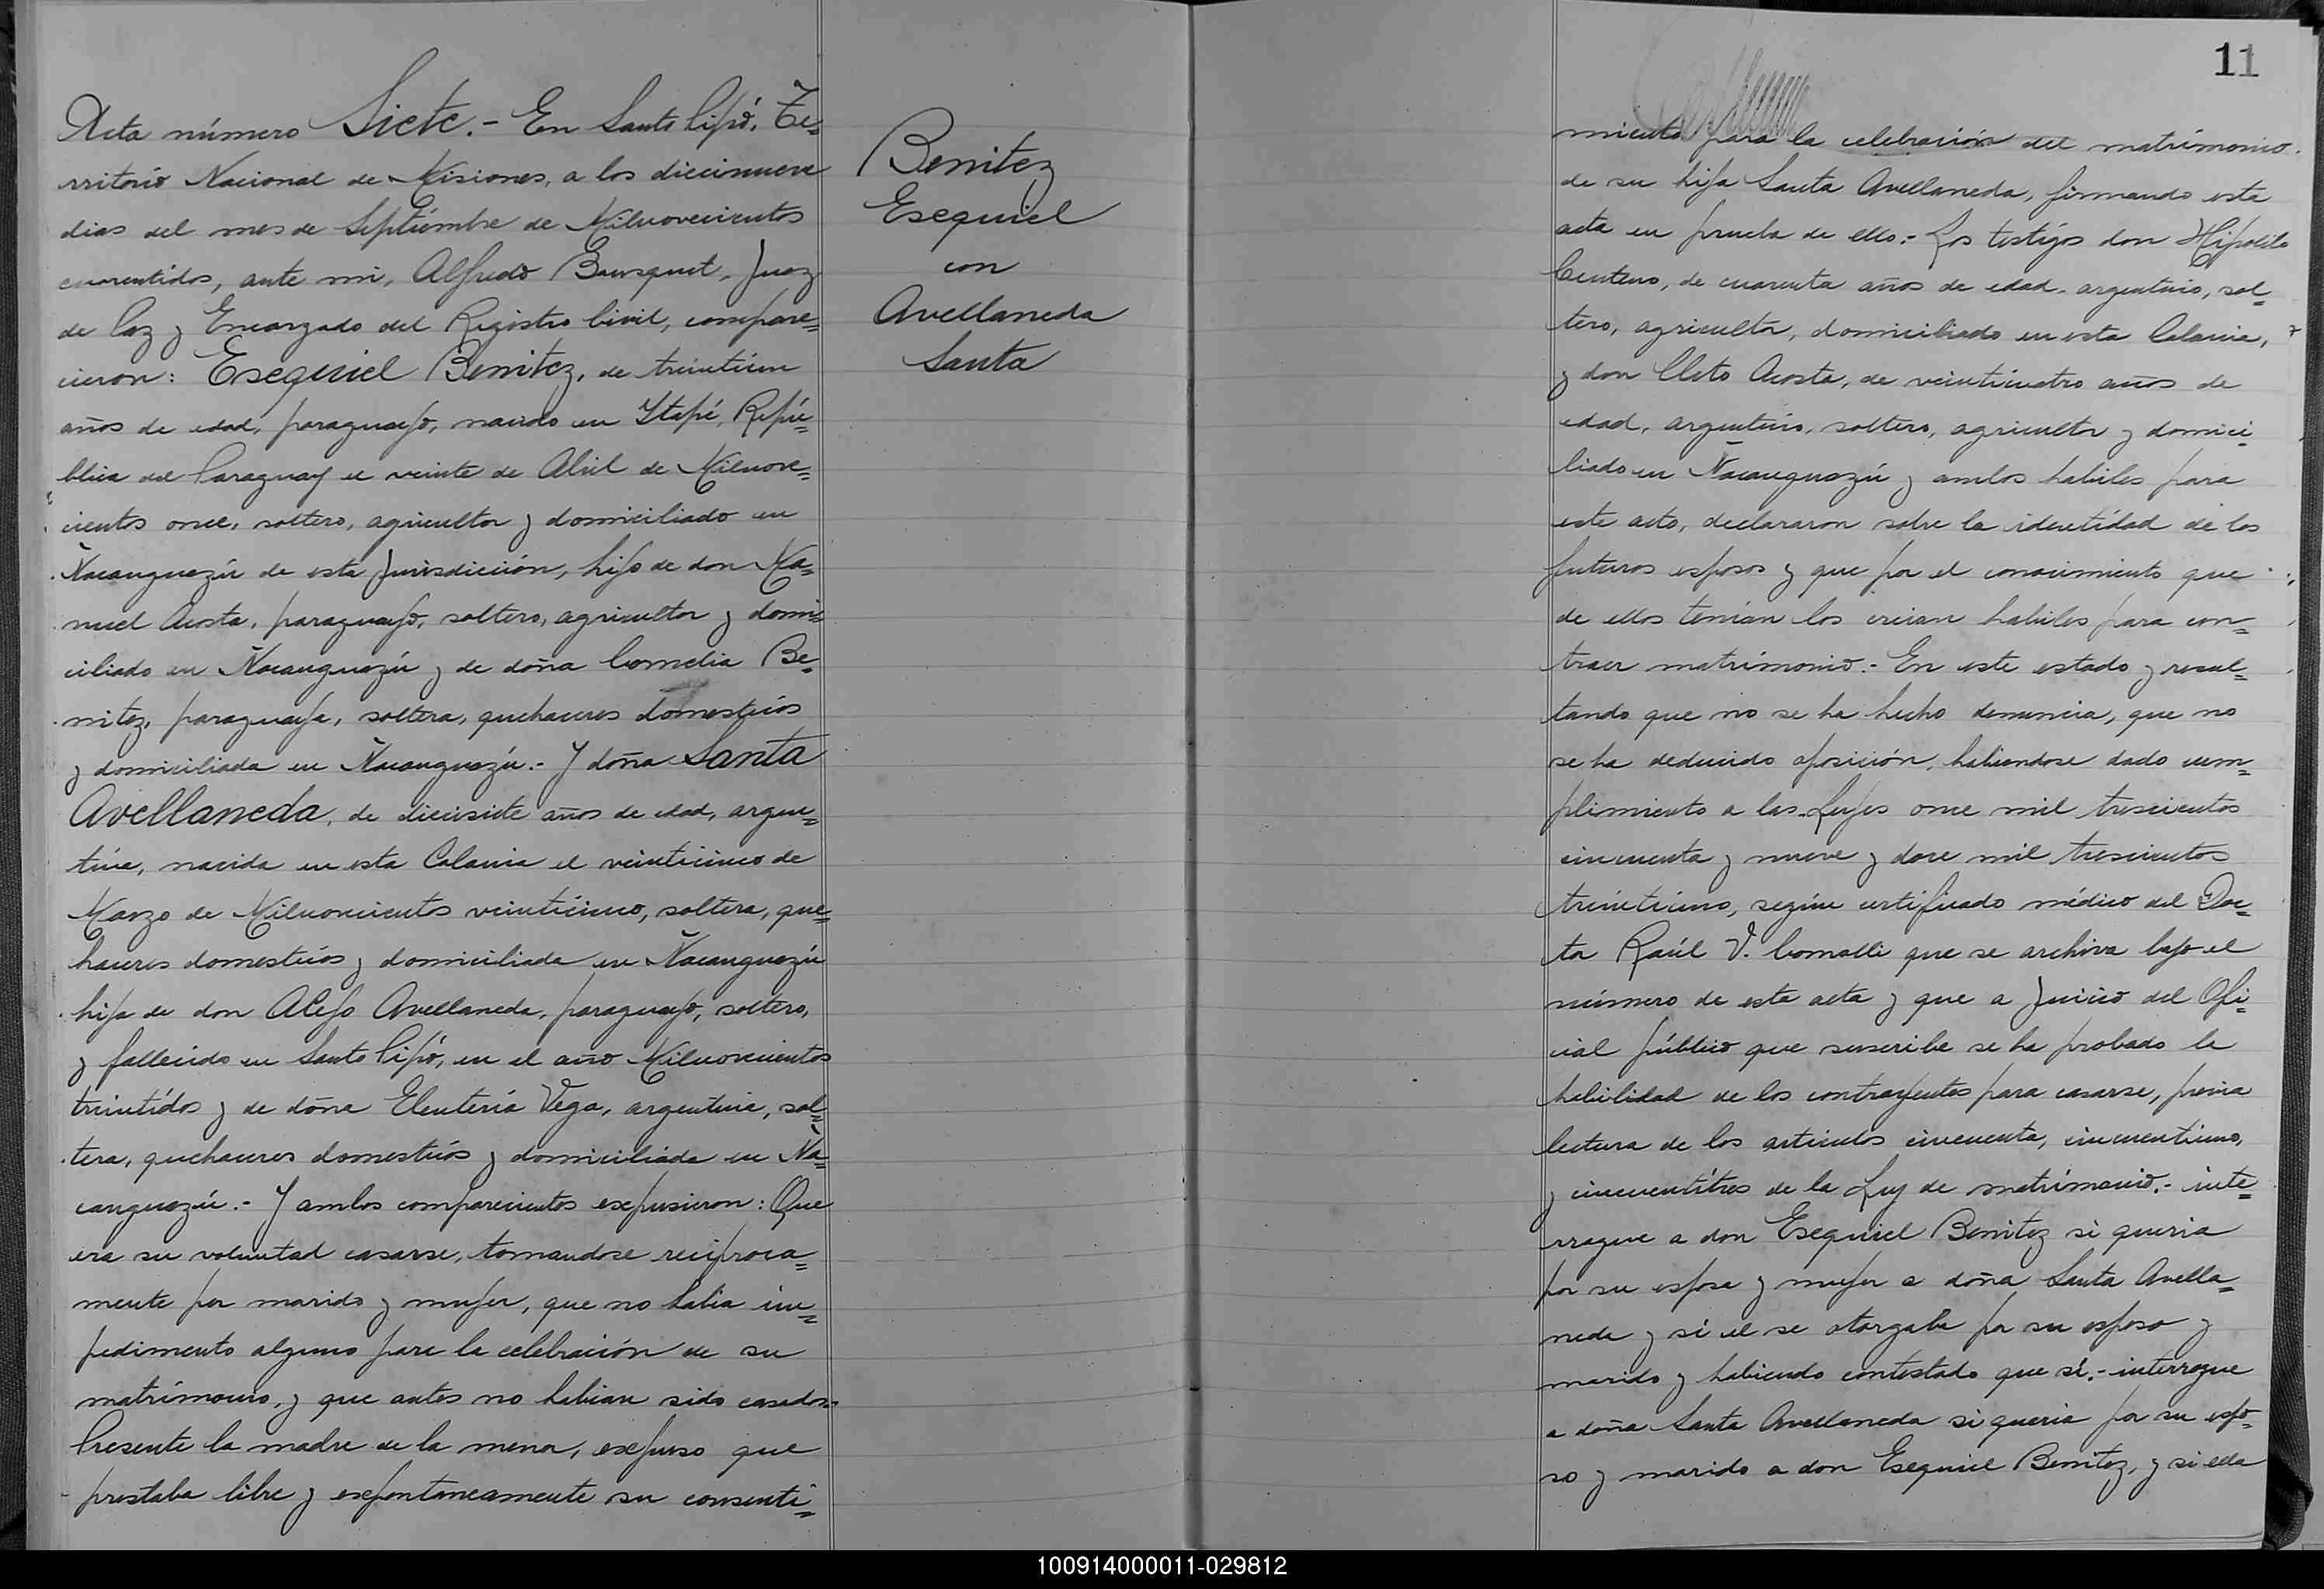 Acta número Siete.- En Santo Pipó, Te=
rritorio Nacional de Misiones, a los diecinueve
dias del mes de Septiembre de Milnovecientos
cuarentidos, ante mi, Alfredo Bousquet, Juez
de Paz y Encargado del Registro Civil, compare=
cieron: Esequiel Benitez, de treintiun
años de edad, paraguayo, nacido en Ytapé, Repú=
blica del Paraguay el veinte de Abril de Milnove=
cientos once, soltero, agricultor y domiciliado en
Ñacanguazú de esta Jurisdicción, hijo de don Ma=
nuel Acosta, paraguayo, soltero, agricultor y domi=
ciliado en Ñacanguazú y de doña Cornelia Be=
nitez, paraguaya, soltera, quehaceres domesticos
y domiciliada en Ñacanguazú.- Y doña Santa
Avellaneda, de diecisiete años de edad, argen=
tina, nacida en esta Colonia el veinticinco de
Marzo de Milnovecientos veinticinco, soltera, que=
haceres domesticos y domiciliada en Ñacanguazú
hija de don Alejo Avellaneda, paraguayo, soltero,
y fallecido en Santo Pipó, en el año Milnovecientos
treintidos y de doña Eleuteria Vega, argentina, sol=
tera, quehaceres domesticos y domiciliada en Ña=
canguazú.- Y ambos comparecientes expusieron: Que
era su voluntad casarse, tomandose reciproca=
mente por marido y mujer, que no habia im=
pedimento alguno para la celebración de su
matrimonio, y que antes no habian sido casados.
Presente la madre de la menor, expuso que
prestaba libre y expontaneamente su consenti=
Benitez
Esequiel
con
Avellaneda
Santa
11
miento para la celebración del matrimonio
de su hija Santa Avellaneda, firmando esta
acta en prueba de ello.- Los testigos don Hipolito
Centeno, de cuarenta años de edad, argentino, sol=
tero, agricultor, domiciliado en esta Colonia,
y don Cleto Acosta, de veinticuatro años de
edad, argentino, soltero, agricultor y domici=
liado en Ñacanguazú y ambos habiles para
este acto, declararon sobre la identidad de los
futuros esposos y que por el conocimiento que
de ellos tenian los creian habiles para con=
traer matrimonio.- En este estado y resul=
tando que no se ha hecho denuncia, que no
se ha deducido oposición, habiendose dado cum=
plimiento a las Leyes once mil trescientos
cincuenta y nueve y doce mil trescientos
treinticinco, según certificado médico del Doc=
tor Raúl V. Comolli que se archiva bajo el
número de esta acta y que a Juicio del Ofi=
cial público que suscribe se ha probado la
habilidad de los contrayentes para casarse, previa
lectura de los articulos cincuenta, cincuentiuno,
y cincuentitres de la Ley de matrimonio.- inte=
rrogue a don Esequiel Benitez si queria
por su esposa y mujer a doña Santa Avella=
neda y si el se otorgaba por su esposo y
marido y habiendo contestado que sí.- interrogue
a doña Santa Avellaneda si queria por su espo=
so y marido a don Esequiel Benitez, y si ella
100914000011-029812